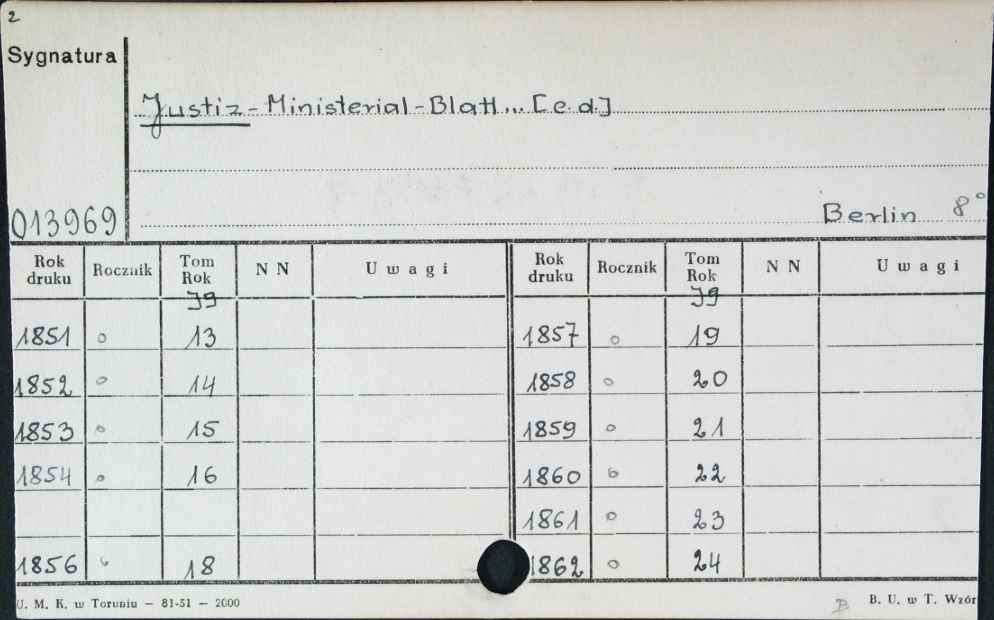 2
Sygnatura
Justiz-Ministerial-Blatt... [e.d.]
013969 Berlin 8°
Rok druku Rocznik Tom Rok N N Uwagi Rok druku Rocznik Tom Rok N N Uwagi
Jg Jg
1851 o 13 1857 o 19
1852 o 14 1858 o 20
1853 o 15 1859 o 21
1854 o 16 1860 o 22
1861 o 23
1856 o 18 1862 o 24
U. M. K. w Toruniu — 81-51 — 2000 B B. U. w T. Wzór